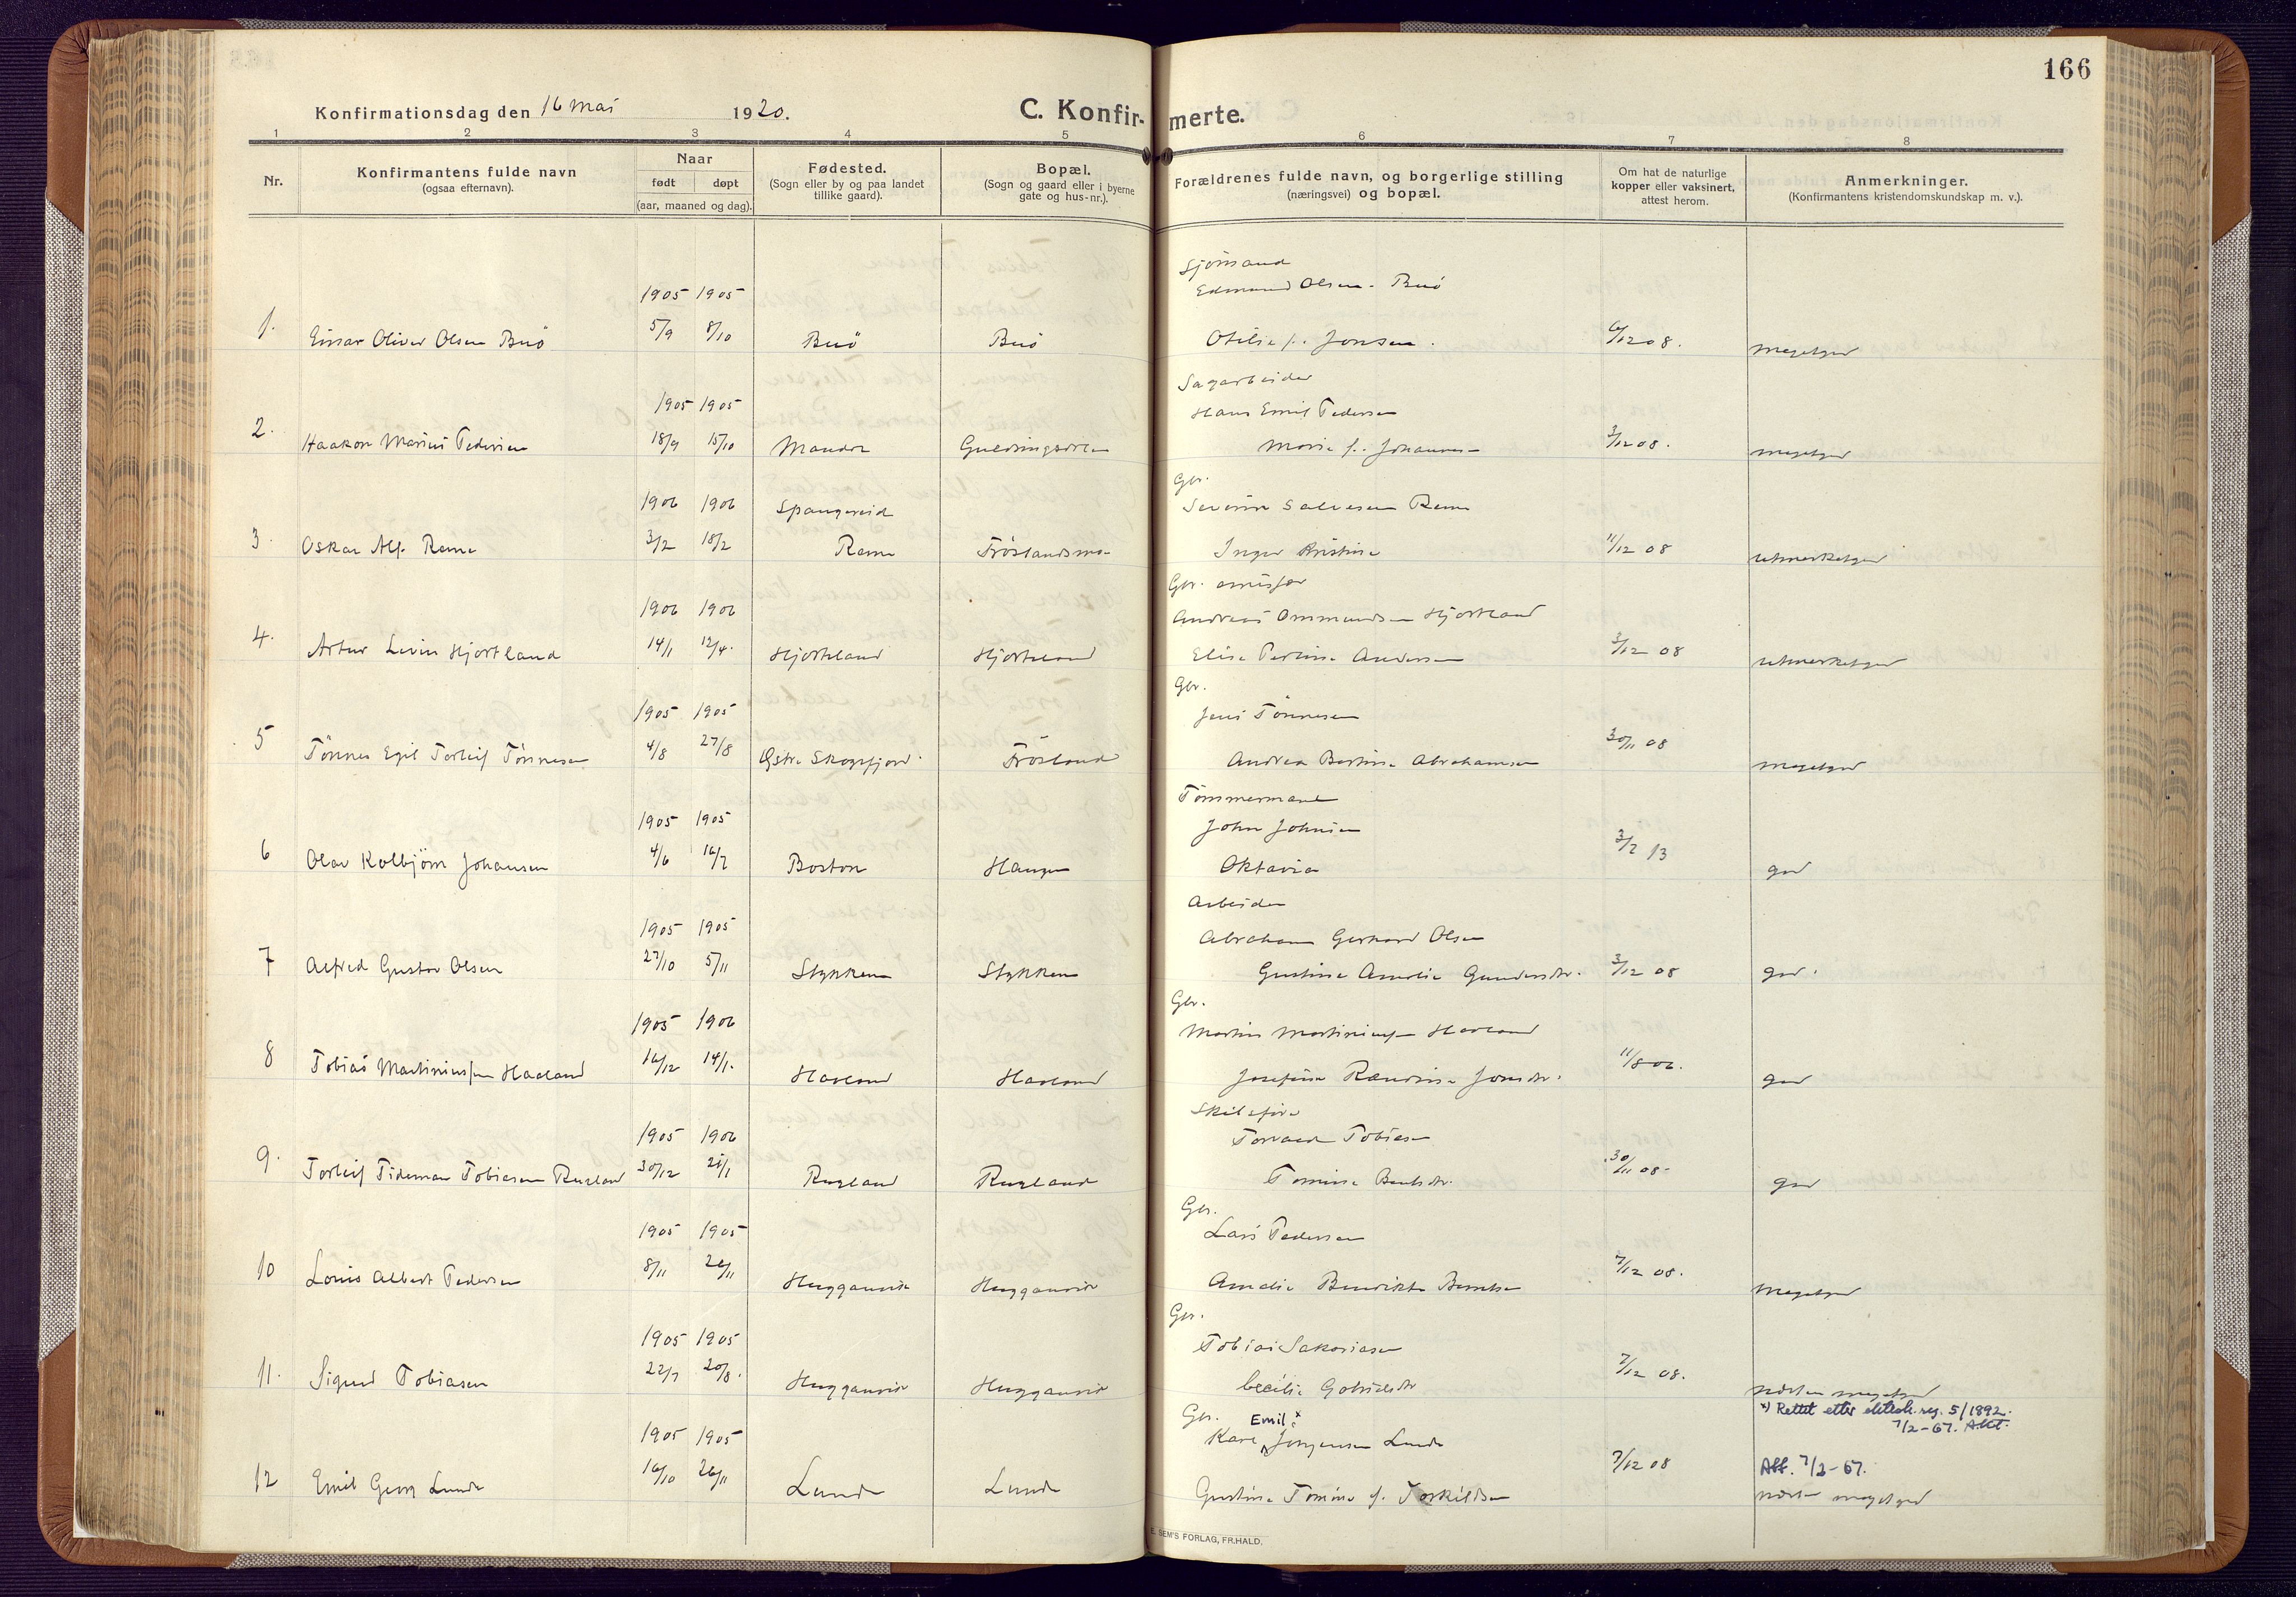 166
Konfirmationsdag den 16 Mai 1920.
C. Konfir- merte.
1 2 3 4 5 6 7 8
Nr.
Konfirmantens fulde navn
(ogsaa efternavn).
Naar
født døpt
(aar, maaned og dag).
Fødested.
(Sogn eller by og paa landet
tillike gaard).
Bopæl.
(Sogn og gaard eller i byerne
gate og hus-nr.).
Forældrenes fulde navn, og borgerlige stilling
(næringsvei) og bopæl.
Om hat de naturlige
kopper eller vaksinert,
attest herom.
Anmerkninger.
(Konfirmantens kristendomskundskap m. v.).
Sjömand
1905 1905 Edmund Olsen Buö
1. Einar Oliver Olsen Buö 5/9 8/10 Buö Buö Otilie f. Jonsen. 6/12 08. megetgod
Sagarbeider
1905 1905 Hans Emil Pedersen
2. Haakon Marius Pedersen 18/9 15/10 Mandal Marie f. Johannesen 3/12 08. megetgod
Gbr.
1906 1906 Spangereid Severin Salvesen Rame
3. Oskar Alf. Rame 3/2 18/2 Rame Tröslandsmo Inger Kristine 11/12 08 utmerketgod
Gbr.
1906 1906 Andreas Ommundsen Hjortland
4. Artur Levin Hjortland 14/1 12/4. Hjorteland Hjorteland Elise Andersen 3/12 08 utmerketgod
Gbr.
1905 1905 Jens Tönnesen
5 Tönnes Egil Torleif Tönnesen 4/8 27/8 Östre Skogsfjord Trösland Andrea Bertine Abrahamsen 30/11 08 megetgod
Tömmermand
1905 1905 John Johnsen
6 Olav Kolbjörn Johansen 4/6 16/7 Boston Haugen Oktavia 3/2 13 god
Arbeider
1905 1905 Abraham Gerhard Olsen
7 Alfred Gustav Olsen 27/10 5/11 Stykken Stykken Gustine Amalie Gundersdtr. 3/12 08 god.
Gbr.
1905 1906 Martin Martiniussen Haaland
8 Tobias Martiniussen Haaland 16/12 14/1. Haaland Haaland Josefine Jonsdtr. 11/8 06. god
1905 1906 Torvald Tobiasen
9. Torleif Tideman Tobiasen Rugland 30/12 21/1 Rugland Rugland Tomine Bentsdtr. 30/11 08. god
Gbr.
1905 1905 Lars Pedersen
10 Louis Albert Pedersen 8/11 26/11 Hugganvik Hugganvik Amalie Benedikte Berntsen 7/12 08. Megetgod
Gbr.
1905 1905 Tobias Sakariasen
11. Sigurd Tobiasen 22/7 20/8. Hugganvik Hugganvik Cecilie 7/12 08. næsten megetgod
x) Rettet etter ektesk. reg. 5/1892.
7/2-67.
Gbr. Emil x
1905 1905 Karl Jörgensen Lunde
12 Emil Georg Lunde 16/10 26/11 Lunde Lunde Gustine Tomine f. Torkildsen 7/12 08 Att. 7/2-67.
næsten megetgod
E. SEM'S FORLAG, FR.HALD.